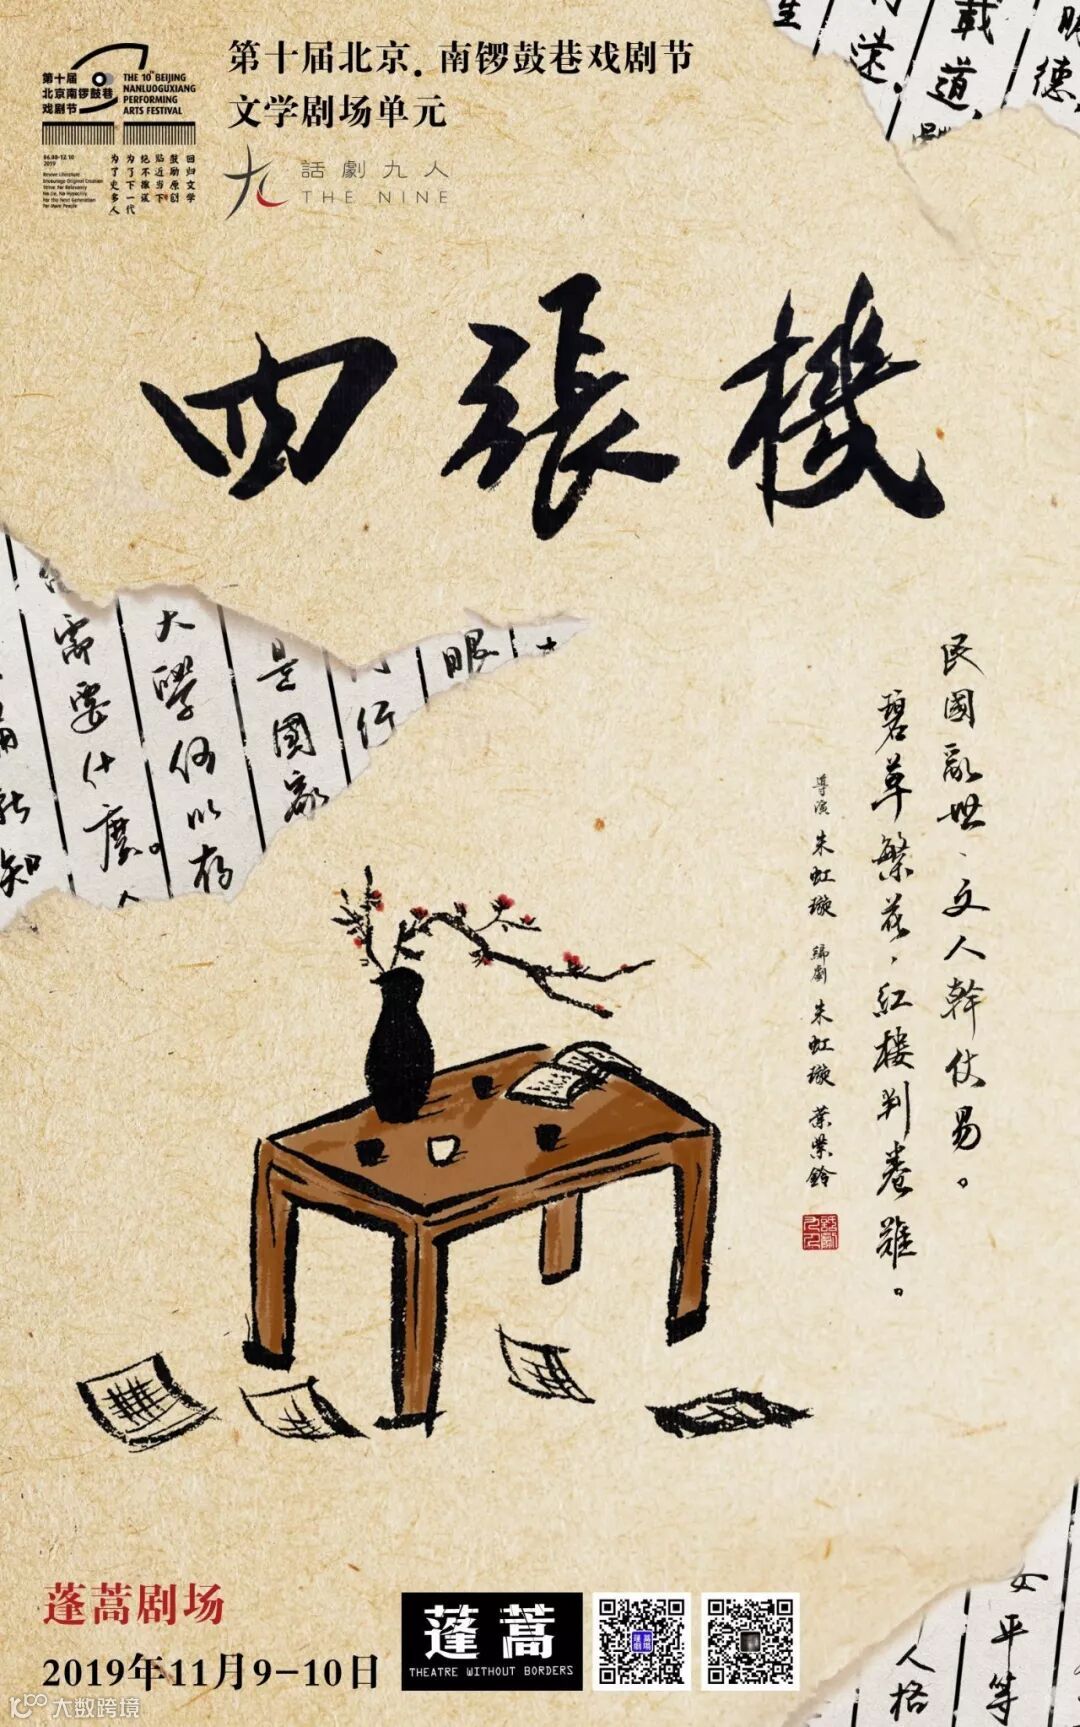 第十届
北京南锣鼓巷
戏剧节
THE 10th BEIJING
NANLUOGUXIANG
PERFORMING
ARTS FESTIVAL
06.08-12.10
2019
回归文学
鼓励原创
贴近当下
绝不搬演
为了下一代
为了更多人
第十届北京·南锣鼓巷戏剧节
文学剧场单元
話劇九人
THE NINE
載
道、
眼
德
四張機
需要什麼。
大學何以存
是國家
行
眼
民國亂世、文人幹仗易。
碧草繁花，紅樓判卷難。
導演 朱虹璇 編劇 朱虹璇 葉紫鈴
人格
平等
蓬蒿剧场
2019年11月9-10日
蓬蒿
THEATRE WITHOUT BORDERS
大数跨境